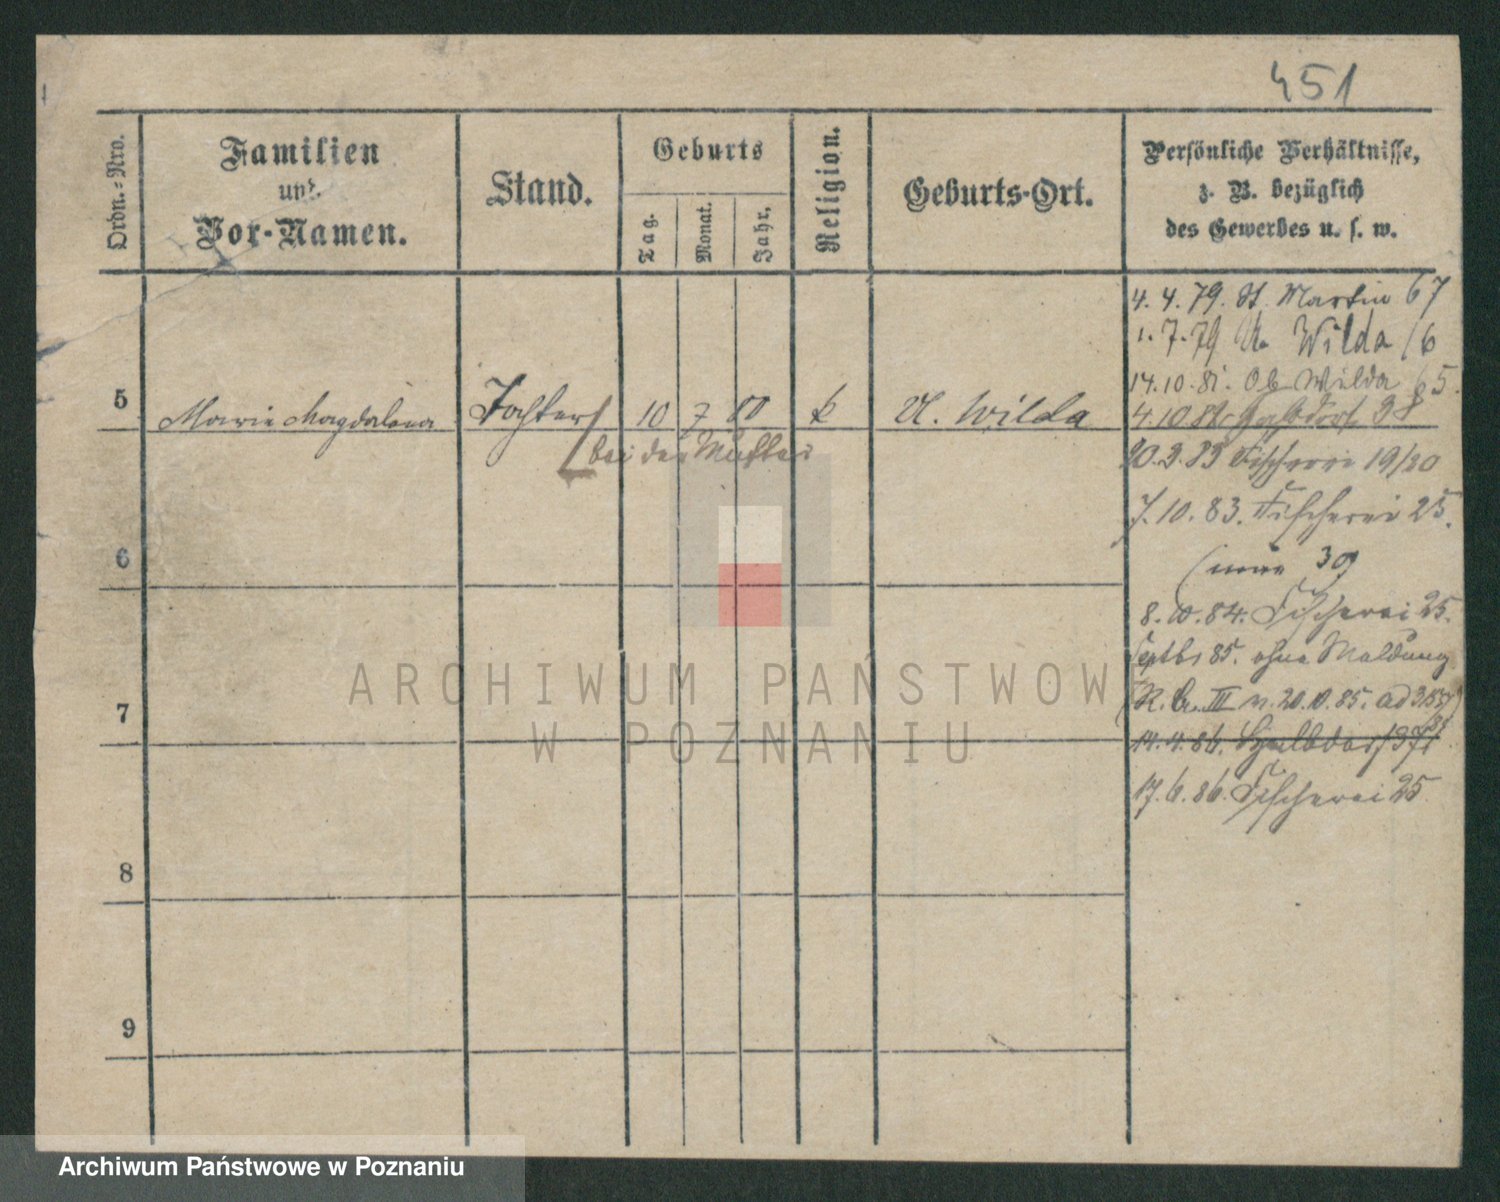 451
Ordn.-Nro.
Familien
und
Vor-Namen.
Stand.
Geburts
Tag.
Monat.
Jahr,
Religion.
Geburts-Ort.
Persönliche Verhältnisse,
z. B. bezüglich
des Gewerbes u. s. w.
4. 4. 79. St. Martin 67
1. 7. 79 Wilda 16
14. 10. 81. Ob Wilda 65.
5 Maria Magdalena Tochter 10 7 80 k U. Wilda
4. 10 38
bei der Mutter
20. 3. 83 Fischerei 19/20
7. 10. 83. Fischerei 25.
6
(nun 30)
8. 10. 84. Fischerei 25.
Septbr 85. ohne Meldung
7
(R. III v. 20. 10. 85. ad
14. 4. 86.
17. 6. 86. Fischerei 25.
8
9
ARCHIWUM PAŃSTWOW
W POZNANIU
Archiwum Państwowe w Poznaniu